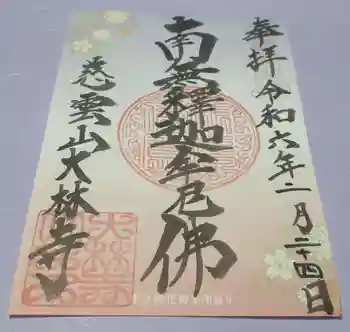 奉拝令和六年二月二十四日
南無釋迦牟尼佛
慈雲山大林寺